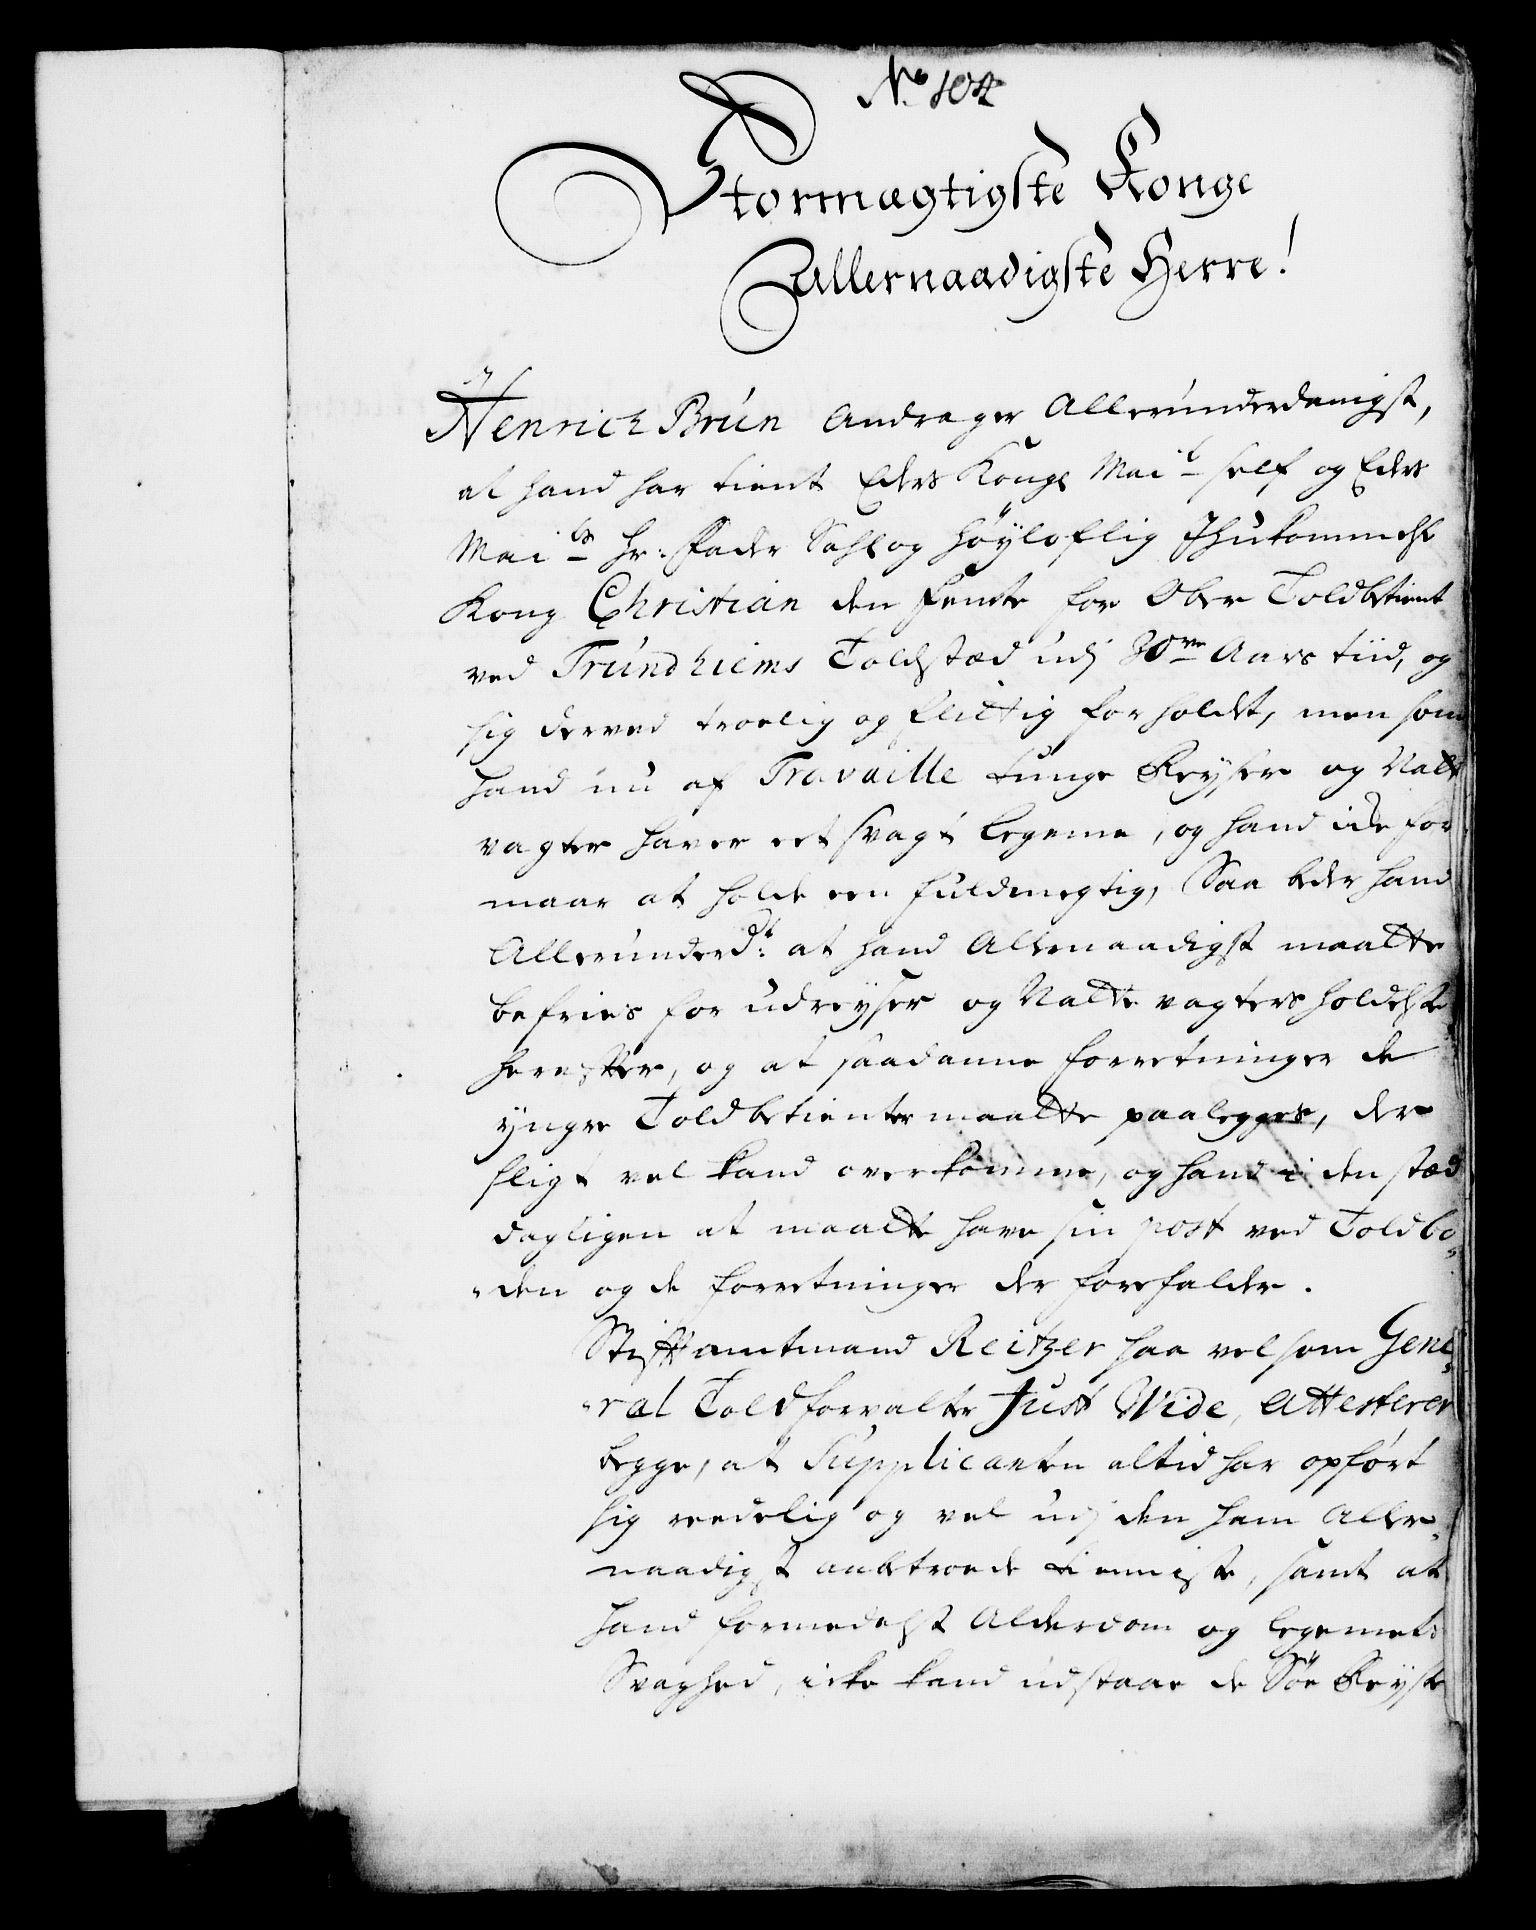 No 104
Stormægtigste Konge
Allernaadigste Herre!
Henrich Brun Andrager Allerunderdanigst,
at hand har tient Eders Kongl Mait self og Eders
Maits Hr: Fader Sahl og Høyloflig Ihukommelse
Kong Christian den Femte for Ober Toldbetient
ved Trundhiems Toldstæd udj 30ve Aars tiid, og
sig derved troelig og flittig forholdt, men som
hand nu af Travaille tunge Reyser og Natte
vagter haver eet svagt legeme, og hand icke for
maar at holde een fuldmegtig, Saa beder hand
Allerunderdt: at hand Allernaadigst maatte
befries for udreyser og Natte vagters holdelse
herefter, og at saadanne forretninger de
yngre Toldbetiente maatte paalegges, der
sligt vel kand overkomme, og hand i den stæd
dagligen at maatte have sin post ved Toldbo-
den og de forretninger der forefalder.
Stiftamtmand Reitzer saa vel som Gene-
ral Toldforvalter Just Wide, Attesterer
begge, at Supplicanten altid har opført
sig reedelig og vel udj den ham Aller-
naadigst anbetroede tienniste, samt at
hand formedelst Alderdom og legemets
Svaghed, icke kand udstaae de Söe Reyser